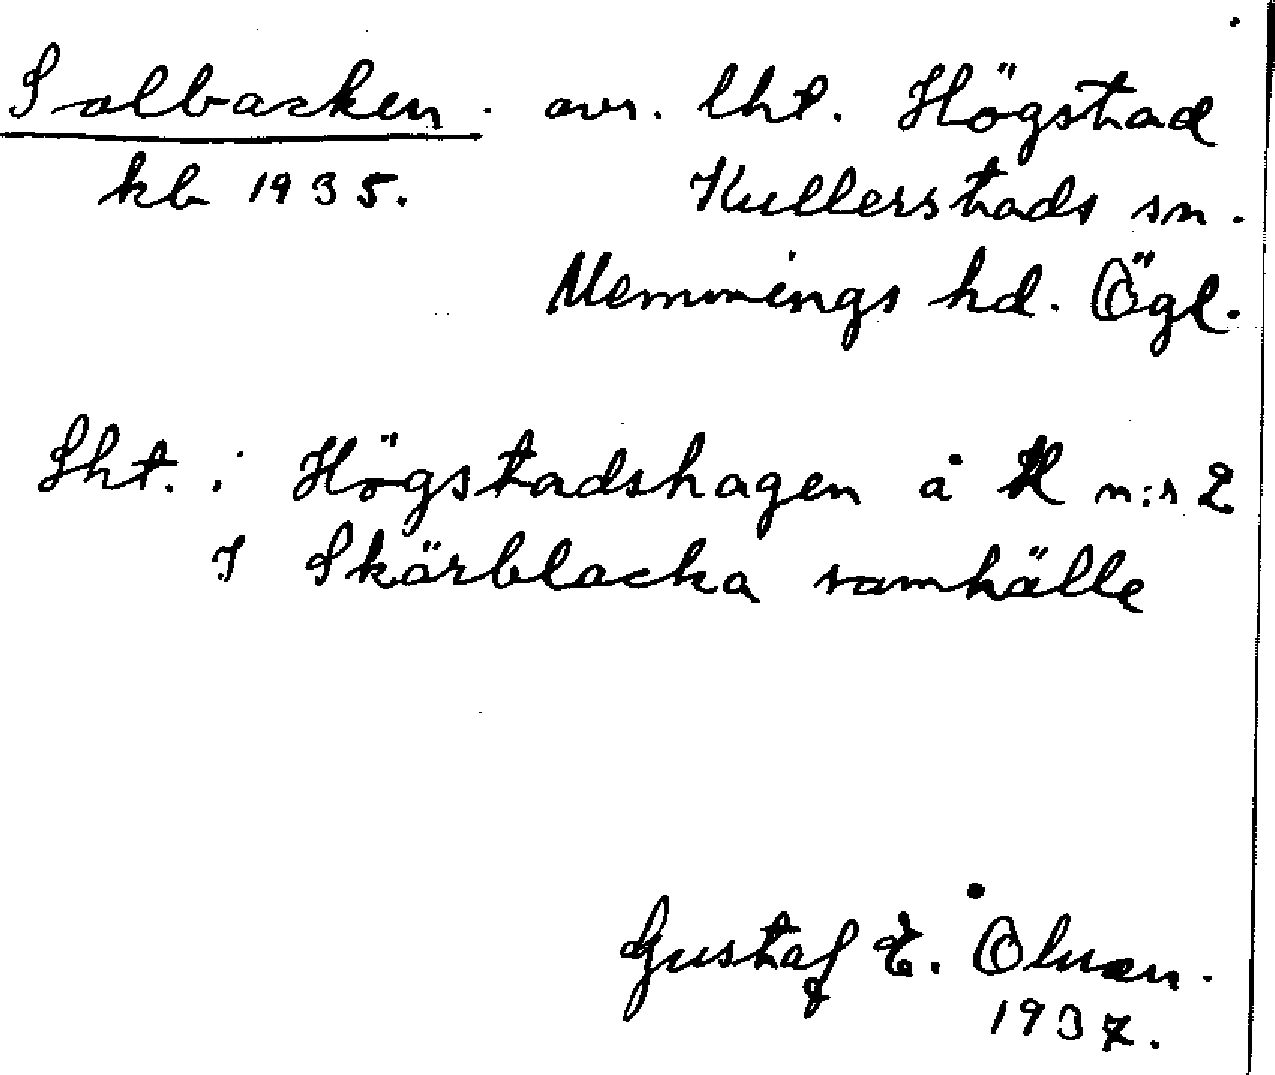 Solbacken. avs. lht. Högstad
kb 1935. Kullerstads sn.
Memmings hd. Ögl.
Lht. i Högstadshagen å H n:r 2
I Skärblacka samhälle
Gustaf E.
1937.